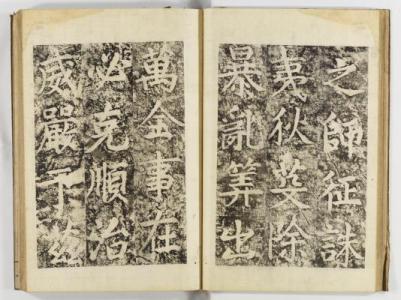 之師征誅
夷似芟除
暴亂筭出
萬金事在
必克順治
威嚴不茲